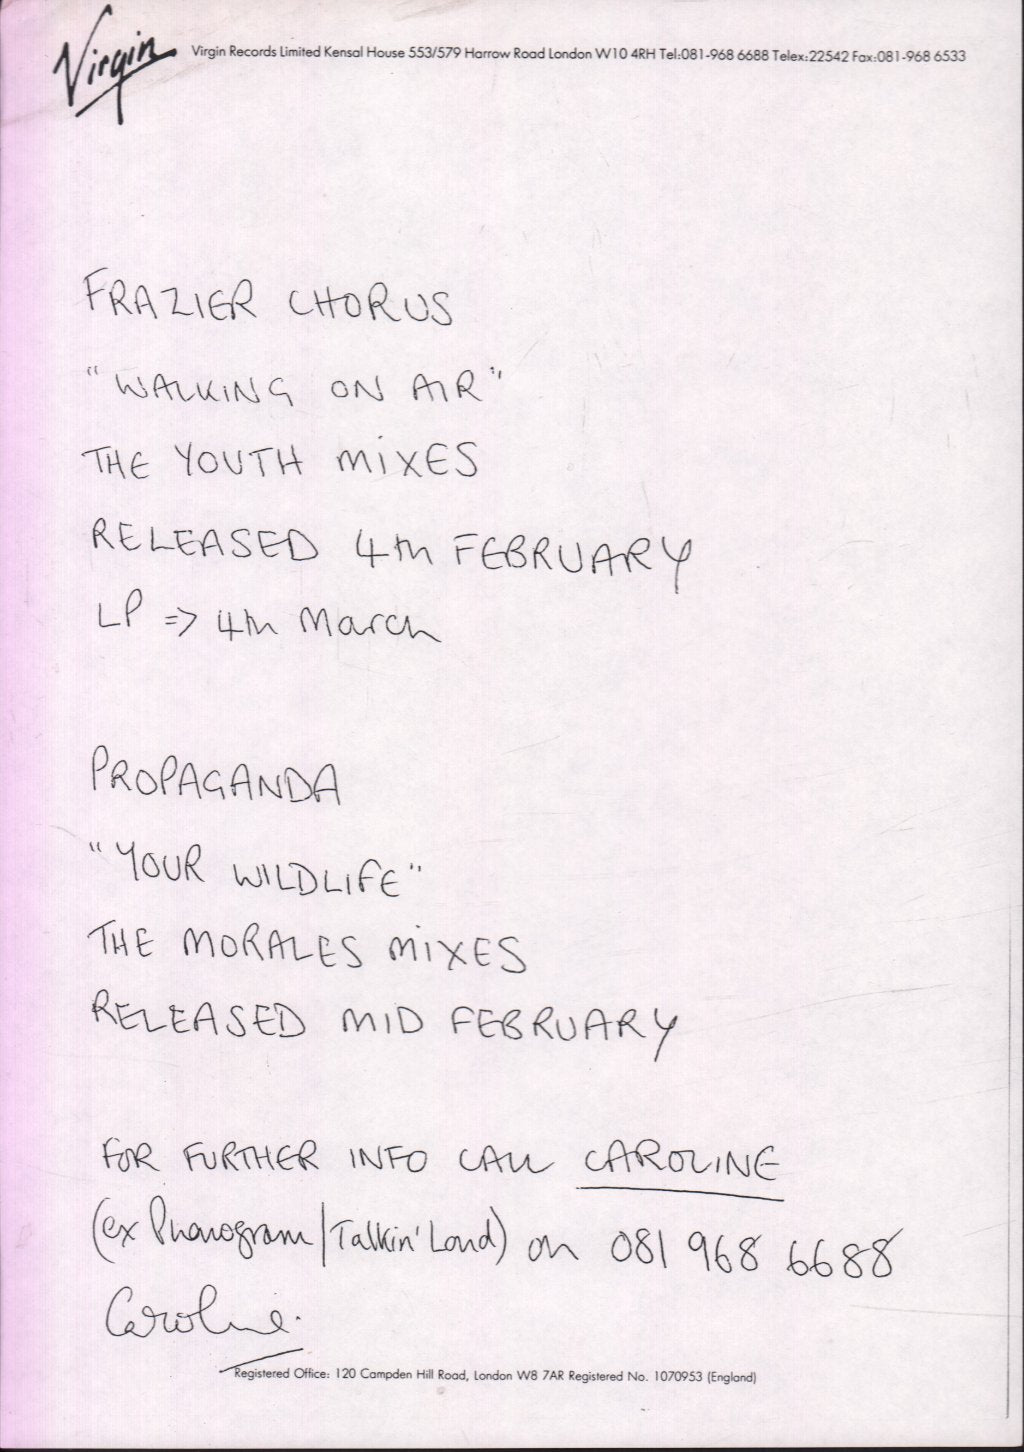 Virgin Virgin Records Limited Kensal House 553/579 Harrow Road London W10 4RH Tel:081-968 6688 Telex:22542 Fax:081-968 6533
FRAZIER CHORUS
"WALKING ON AIR"
THE YOUTH MIXES
RELEASED 4th FEBRUARY
LP => 4th March
PROPAGANDA
"YOUR WILDLIFE"
THE MORALES MIXES
RELEASED MID FEBRUARY
FOR FURTHER INFO CALL CAROLINE
(ex Phonogram/Talkin' Loud) on 081 968 6688
Caroline.
Registered Office: 120 Campden Hill Road, London W8 7AR Registered No. 1070953 (England)